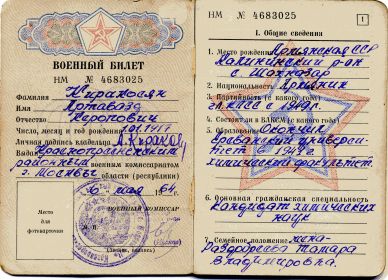 ВОЕННЫЙ БИЛЕТ
НМ № 4683025
Фамилия Киракосян
Имя Артавазд
Отчество Каропович
Число, месяц и год рождения 1911
Личная подпись владельца А. Кирак
Выдан Краснопресненским
районным военным комиссариатом
г. Москвы области (республики)
6 мая 64 г.
ВОЕННЫЙ КОМИССАР
Место
для
фотокарточки
М. П.
(Звание, подпись)
НМ № 4683025
1
I. Общие сведения
1. Место рождения Армянская ССР
Калининский р-он
с. Шахназар
2. Национальность Армянин
3. Партийность (с какого года)
КПСС с 1940 г.
4. Состоит ли в ВЛКСМ (с какого года)
5. Образование Окончил
Ереванский университет
в г.
химический факультет
6. Основная гражданская специальность
Кандидат химических
наук
7. Семейное положение жена-
Раздорова Тамара
Владимировна.